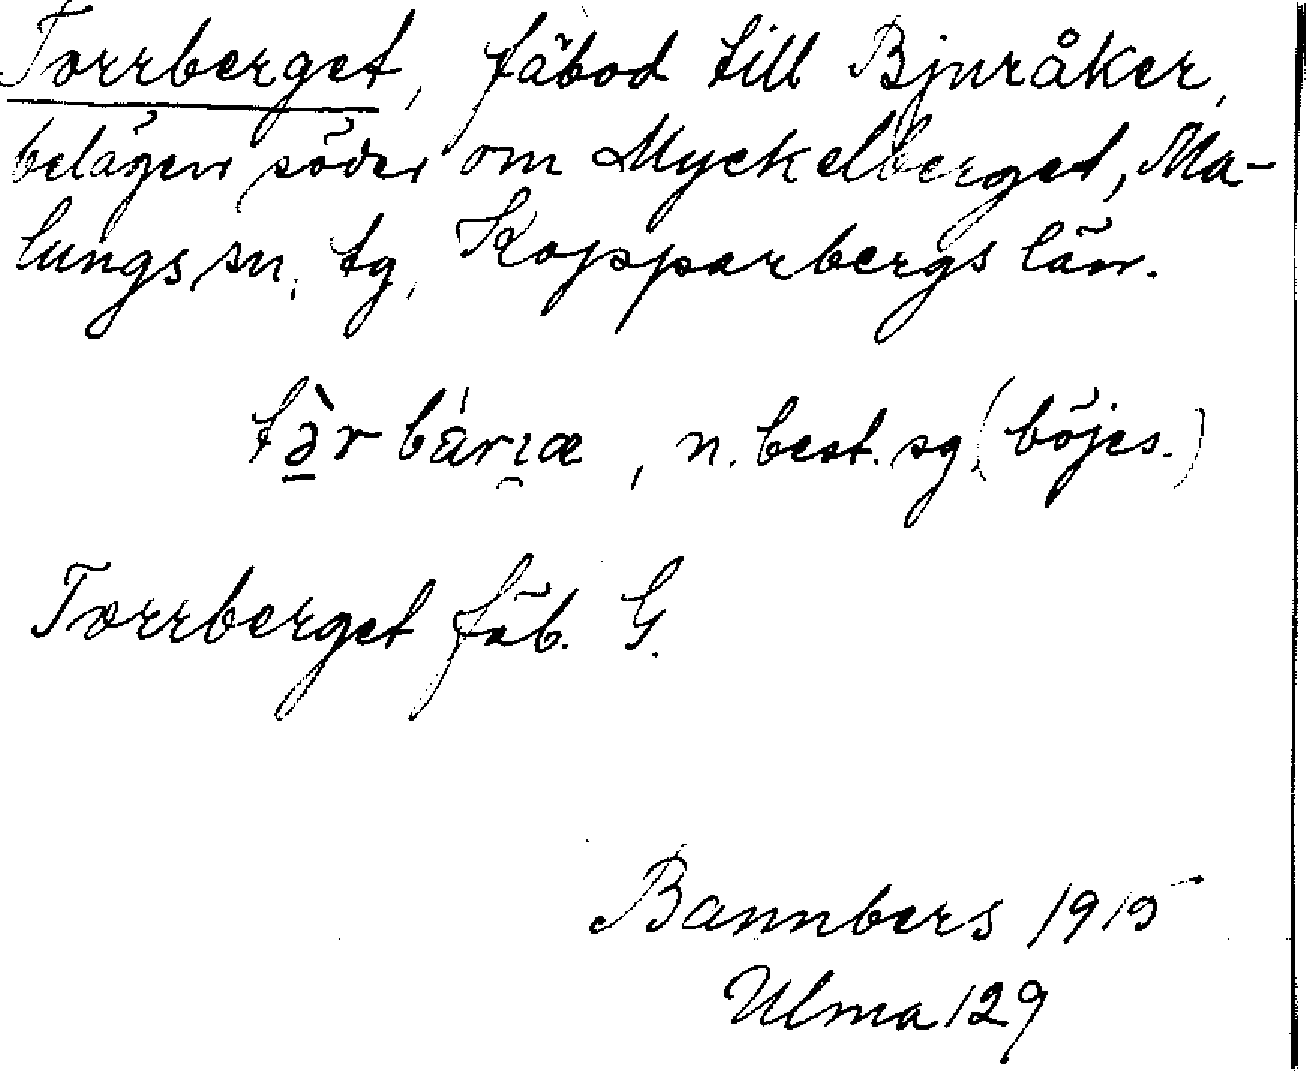 Torrberget, fäbod till Bjuråker,
belägen söder om Myckelberget, Ma-
lungs sn, tg, Kopparbergs län.
tə̠̀r bárı̯æ, n. best. sg. (böjes.)
Torrberget fäb. G.
Bannbers 1915
Ulma 129